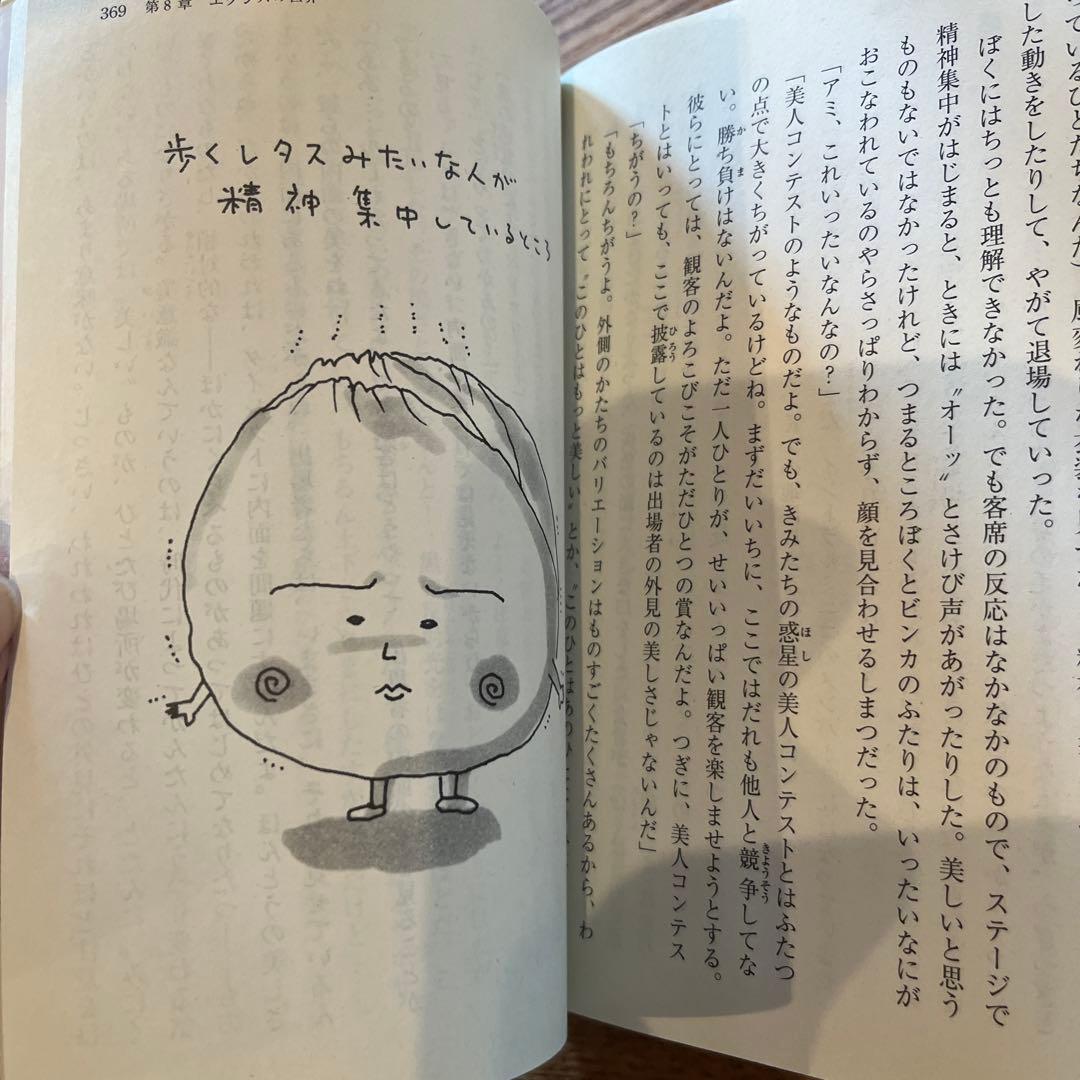 ているひとたちなんだ
した動きをしたりして、やがて退場していった。
ぼくにはちっとも理解できなかった。でも客席の反応はなかなかのもので、ステージで
精神集中がはじまると、ときには〝オーッ〟とさけび声があがったりした。美しいと思う
ものもないではなかったけれど、つまるところぼくとビンカのふたりは、いったいなにが
おこなわれているのやらさっぱりわからず、顔を見合わせるしまつだった。
「アミ、これいったいなんなの？」
「美人コンテストのようなものだよ。でも、きみたちの惑星の美人コンテストとはふたつ
の点で大きくちがっているけどね。まずだいいちに、ここではだれも他人と競争してな
い。勝ち負けはないんだよ。ただ一人ひとりが、せいいっぱい観客を楽しませようとする。
彼らにとっては、観客のよろこびこそがただひとつの賞なんだよ。つぎに、美人コンテス
トとはいっても、ここで披露しているのは出場者の外見の美しさじゃないんだ」
「ちがうの？」
「もちろんちがうよ。外側のかたちのバリエーションはものすごくたくさんあるから、わ
れわれにとって〝このひとはもっと美しい〟とか、〝このひとはあのひと
369 第8章
歩くレタスみたいな人が
精神集中しているところ